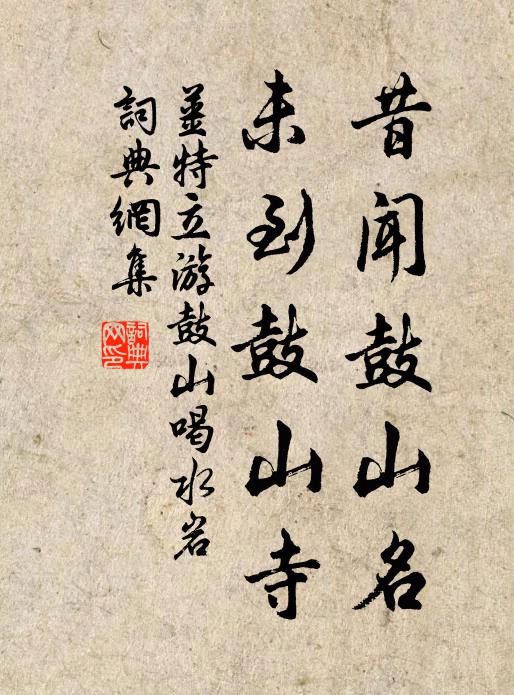 昔闻鼓山名
未到鼓山寺
姜特立游鼓山喝水岩
詞典網集
詞典网印